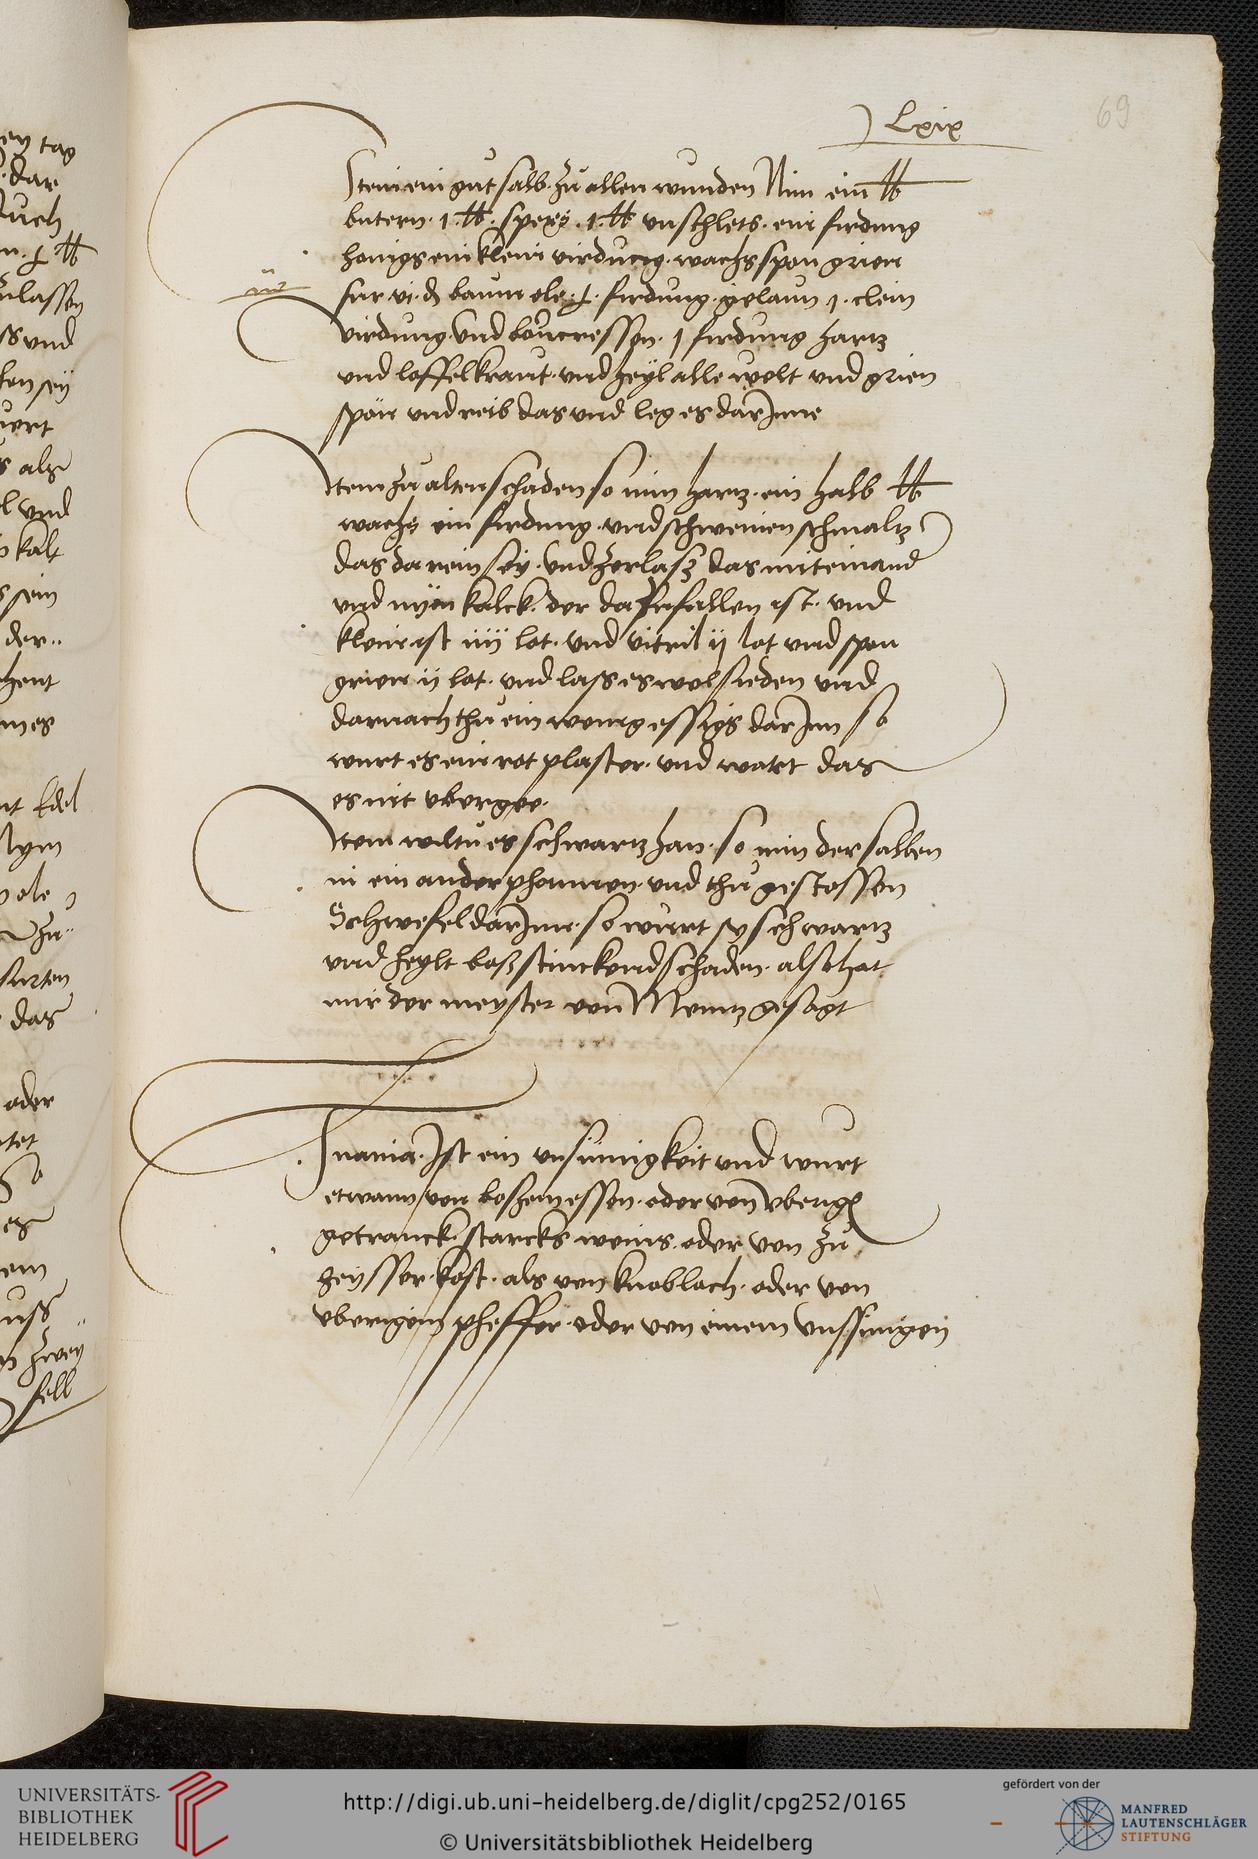 Lxix
69
Item ein gut salb zu allen wunden Nim ein ℔
butern · 1 · ℔ · specks · 1 · ℔ unschlets · ein firdung
honigs ein klein virdung · wachs span grien
fur vi · ₰ baum ole · firdung · 1 · clein
virdung und boucressen · 1 firdung hartz
und loffelkraut und heyl alle welt und grien
span und reib das und leg es dar Inne
Item zu alten schaden so nim hartz · ein halb ℔
wachs ein firdung · und schweinen schmaltz
das da rein sey · und zerlasz das miteinand
und nyen kalck · der da zerfallen ist · und
klein ist iiij lot · und vitril ij lot und span
grien ij lot · und lass es wol sieden und
darnach thu ein wenig essigs dar Inn so
wurt es ein rot plaster · und wart das
es nit uberg
Item wiltu es schwartz han · so nim der salben
in ein ander phannen · und thu gestossen
Schwefel dar Inne · so wurt sy schwartz
und heylt bosz stinckend schaden · also hat
mir der meyster von Mentz gesagt
Inania · Ist ein unsinnigkeit und wurt
etwann von boszem essen · oder von uberig
getranck starcks weins · oder von zu
heysser kost · als von knoblach · oder von
uberigem pheffer · oder von einem unssinigen
UNIVERSITÄTS-
BIBLIOTHEK
HEIDELBERG
http://digi.ub.uni-heidelberg.de/diglit/cpg252/0165
© Universitätsbibliothek Heidelberg
gefördert von der
MANFRED
LAUTENSCHLÄGER
STIFTUNG